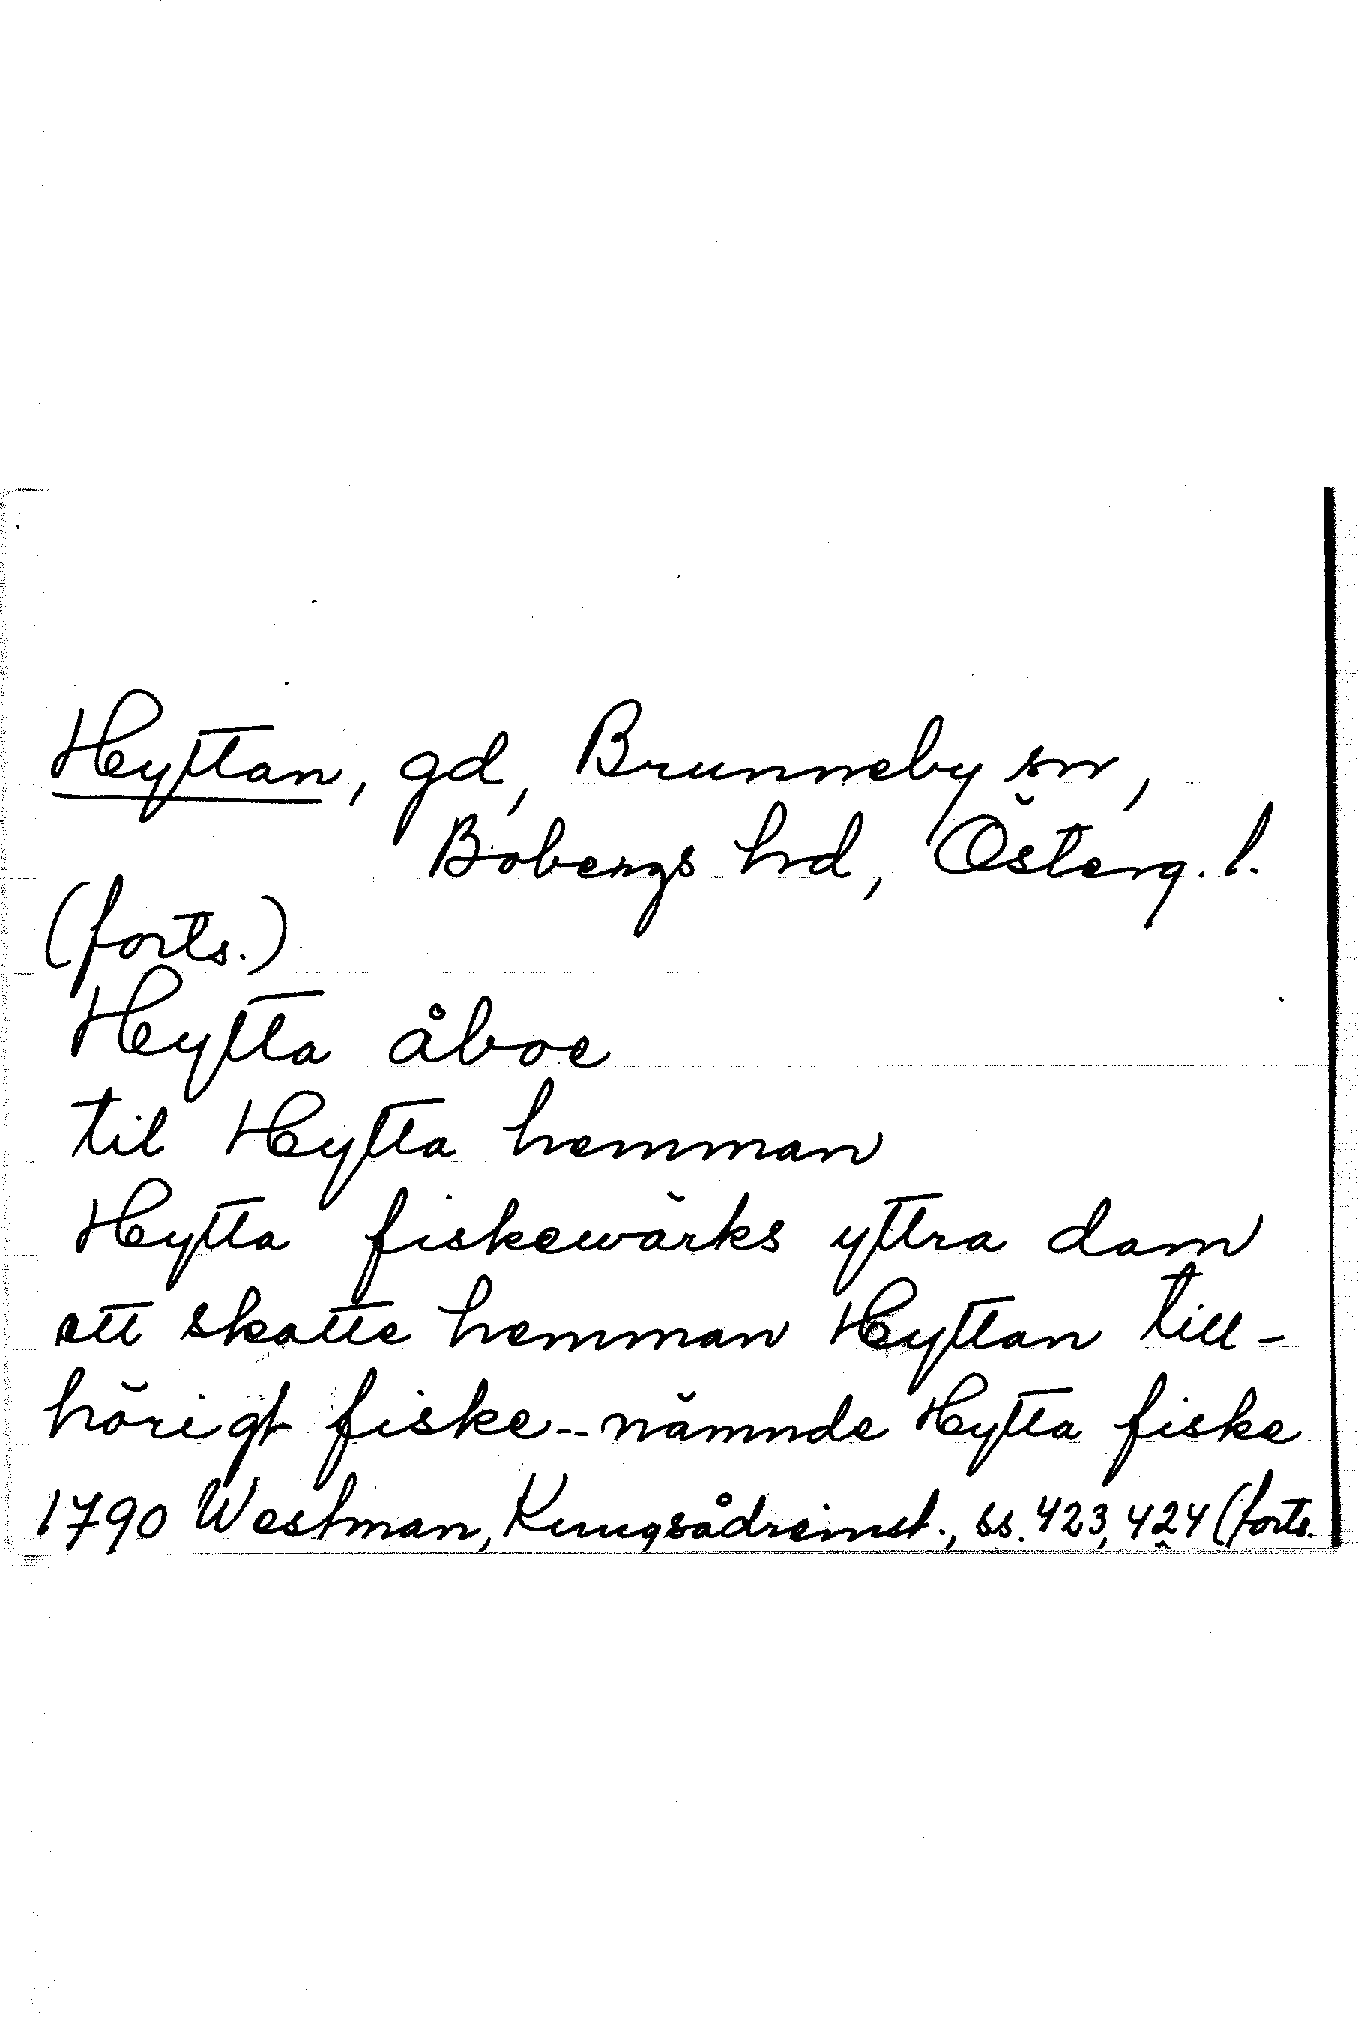 Hyttan, gd, Brunneby sn,
Bobergs hd, Österg. l.
(forts.)
Hytta åboe
til Hytta hemman
Hytta fiskewärks yttra dam
ett skatte hemman Hyttan till-
hörigt fiske -- nämnde Hytta fiske
1790 Westman, Kungsådreinst., ss. 423, 424 (forts.